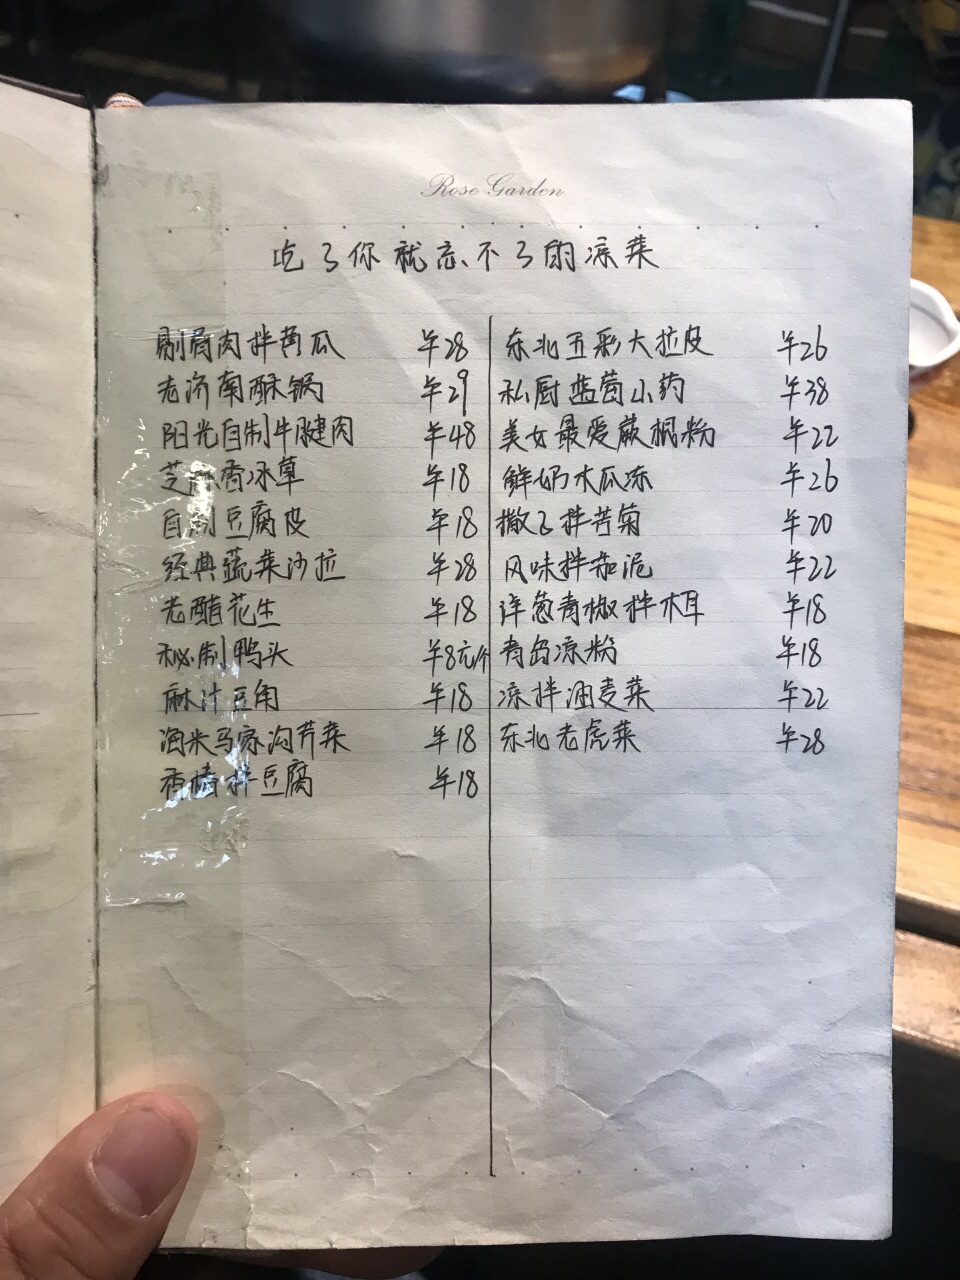 Rose Garden
吃了你就忘不了的凉菜
剔骨肉拌黄瓜 ¥28
老济南酥锅 ¥29
阳光自制牛腱肉 ¥48
芝麻香冰草 ¥18
自制豆腐皮 ¥18
经典蔬菜沙拉 ¥28
老醋花生 ¥18
秘制鸭头 ¥8元/个
麻汁豆角 ¥18
淘米马家沟芹菜 ¥18
香椿拌豆腐 ¥18
东北五彩大拉皮 ¥26
私厨蓝莓山药 ¥38
美女最爱蕨根粉 ¥22
鲜奶木瓜冻 ¥26
撒子拌苦菊 ¥20
风味拌茄泥 ¥22
洋葱青椒拌木耳 ¥18
青岛凉粉 ¥18
凉拌油麦菜 ¥22
东北老虎菜 ¥28